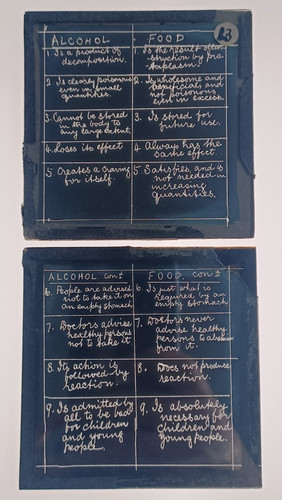 13
ALCOHOL
FOOD
1. Is a product of
decomposition.
1. Is the result of
struction by pro-
toplasm.
2. Is clearly poisonous
even in small
quantities.
2. Is wholesome and
beneficial, and
not poisonous
even in excess.
3. Cannot be stored
in the body to
any large extent.
3. Is stored for
future use.
4. Loses its effect
4. Always has the
same effect
5. Creates a craving
for itself.
5. Satisfies, and is
not needed in
increasing
quantities.
ALCOHOL cont
FOOD cont
6. People are advised
not to take it on
an empty stomach
6. Is just what is
required by an
empty stomach
7. Doctors advise
healthy persons
not to take it
7. Doctors never
advise healthy
persons to abstain
from it.
8. Its action is
followed by
reaction.
8. Does not produce
reaction.
9. Is admitted by
all to be bad
for children
and young
people.
9. Is absolutely
necessary for
children and
young people.